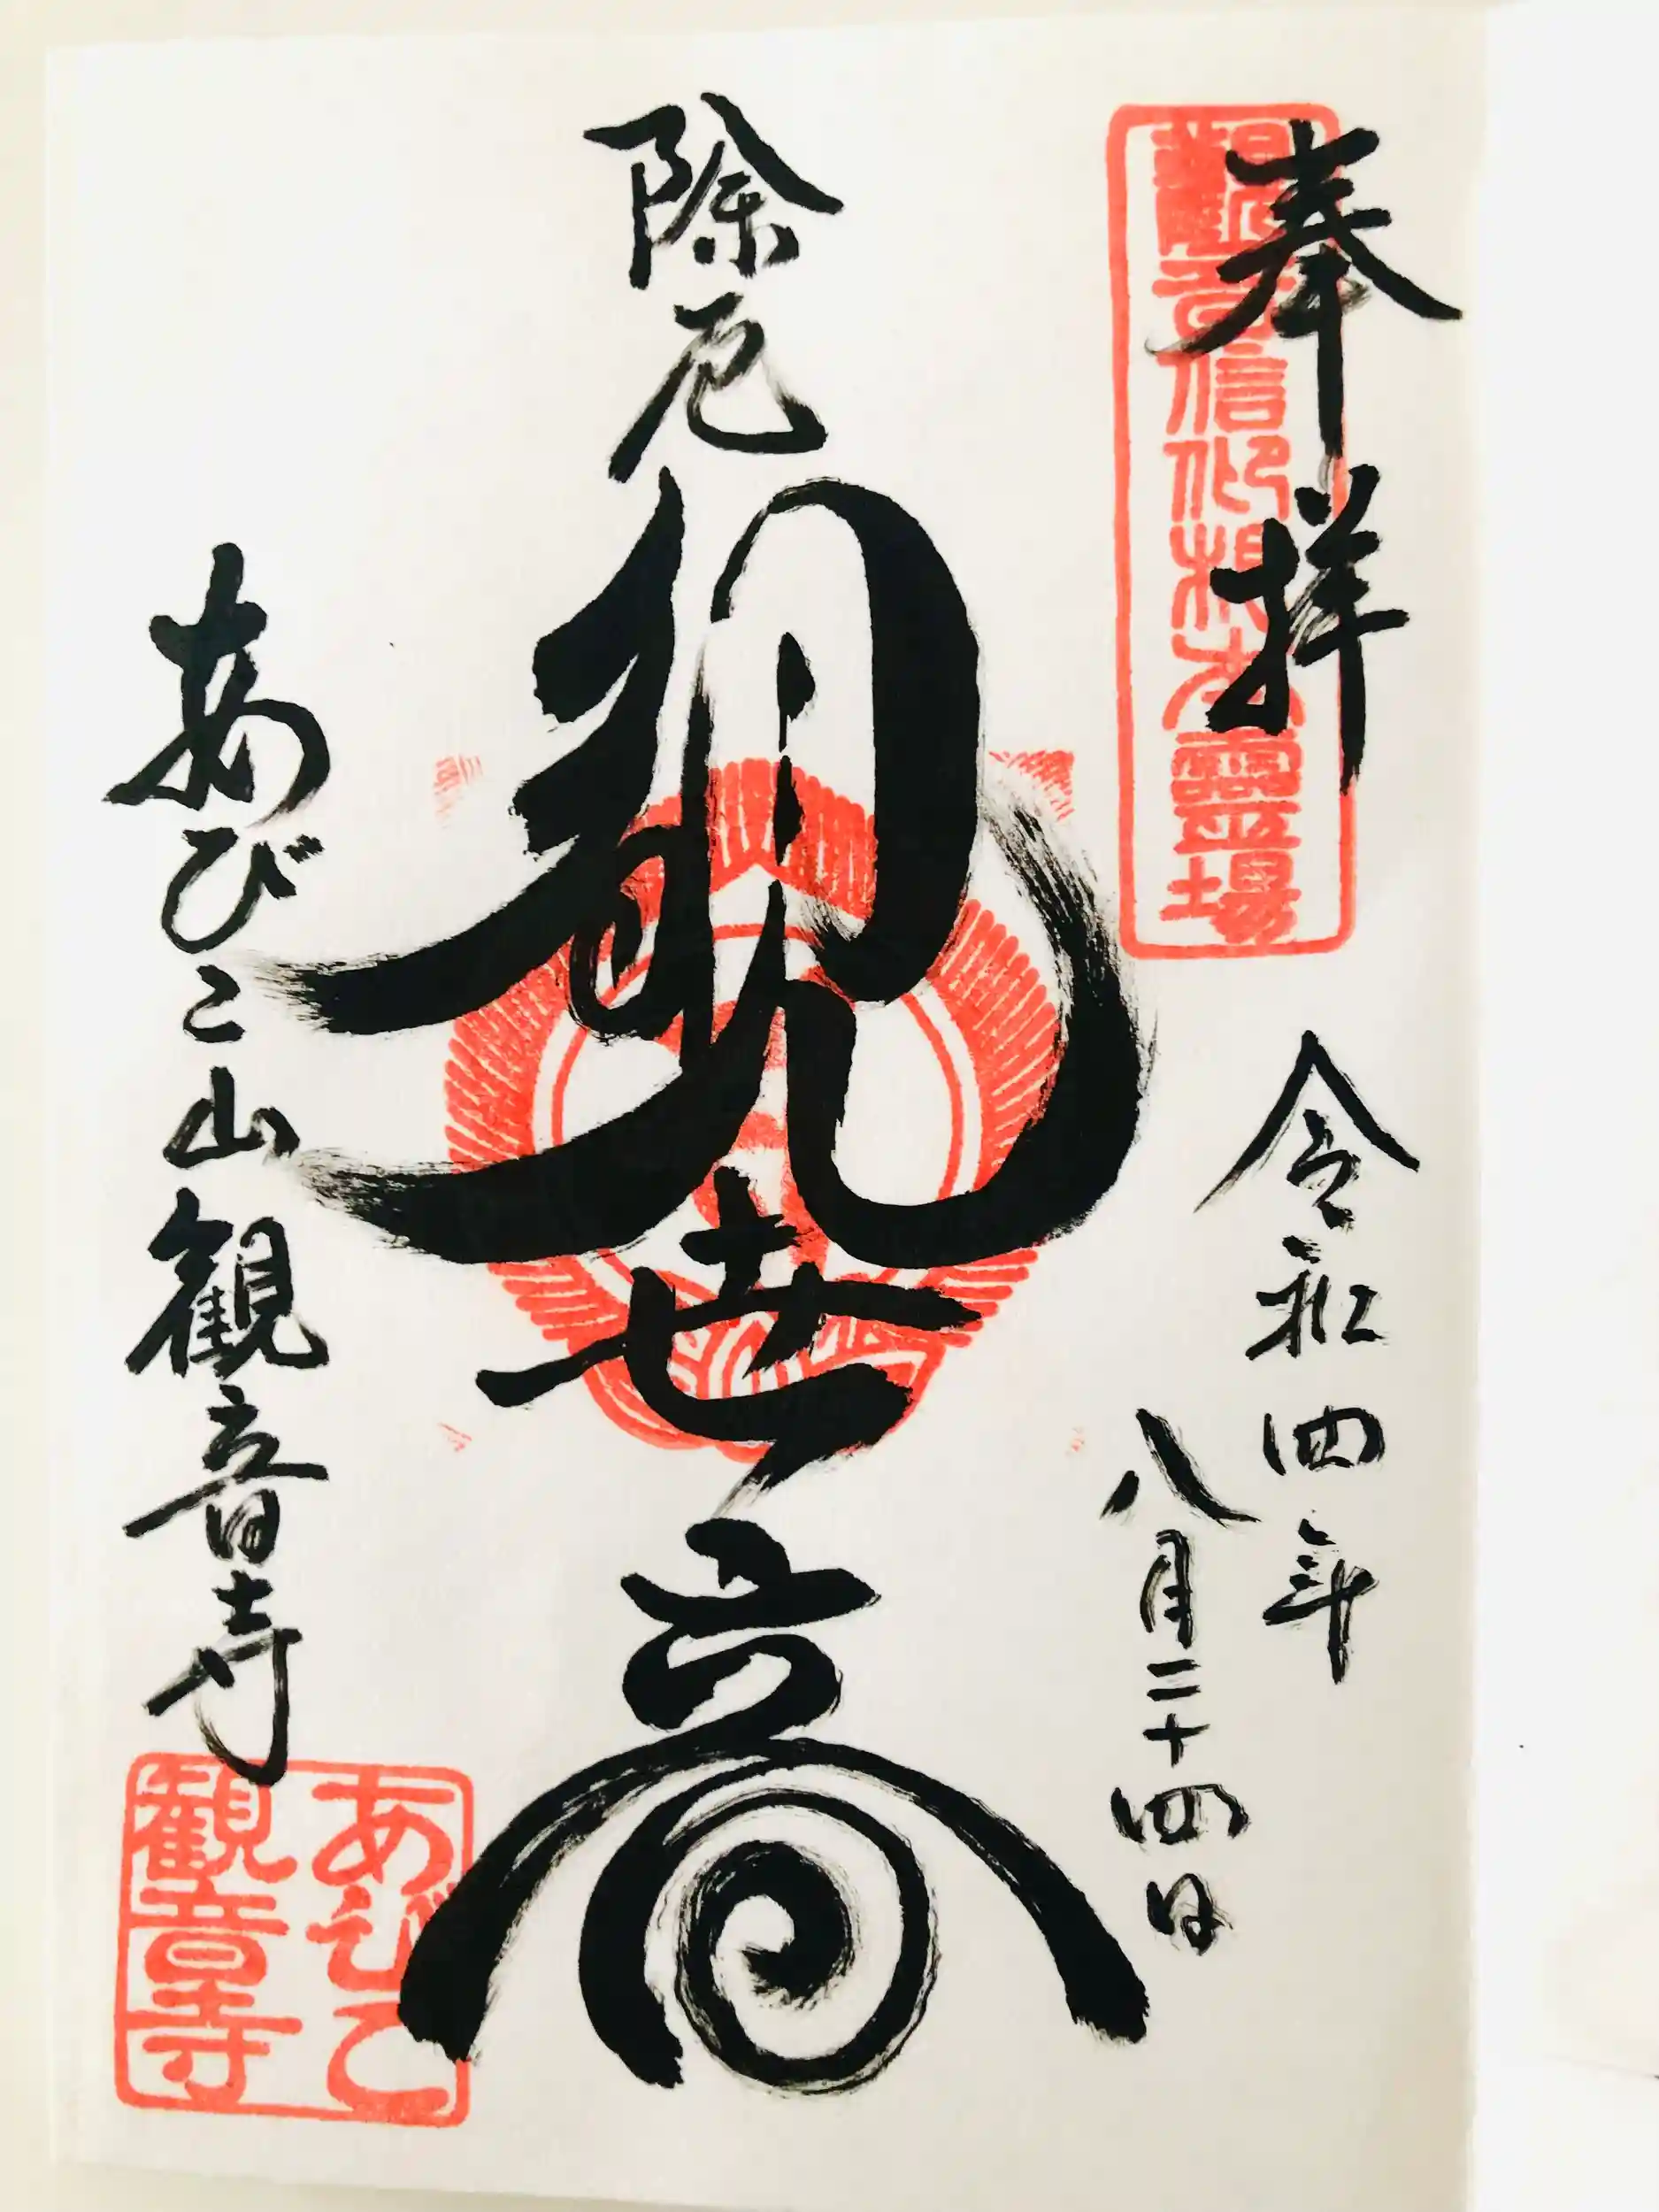 奉拝
観音信仰根本霊場
令和四年
八月二十四日
除厄
観世音
あびこ山観音寺
あびこ
観音寺